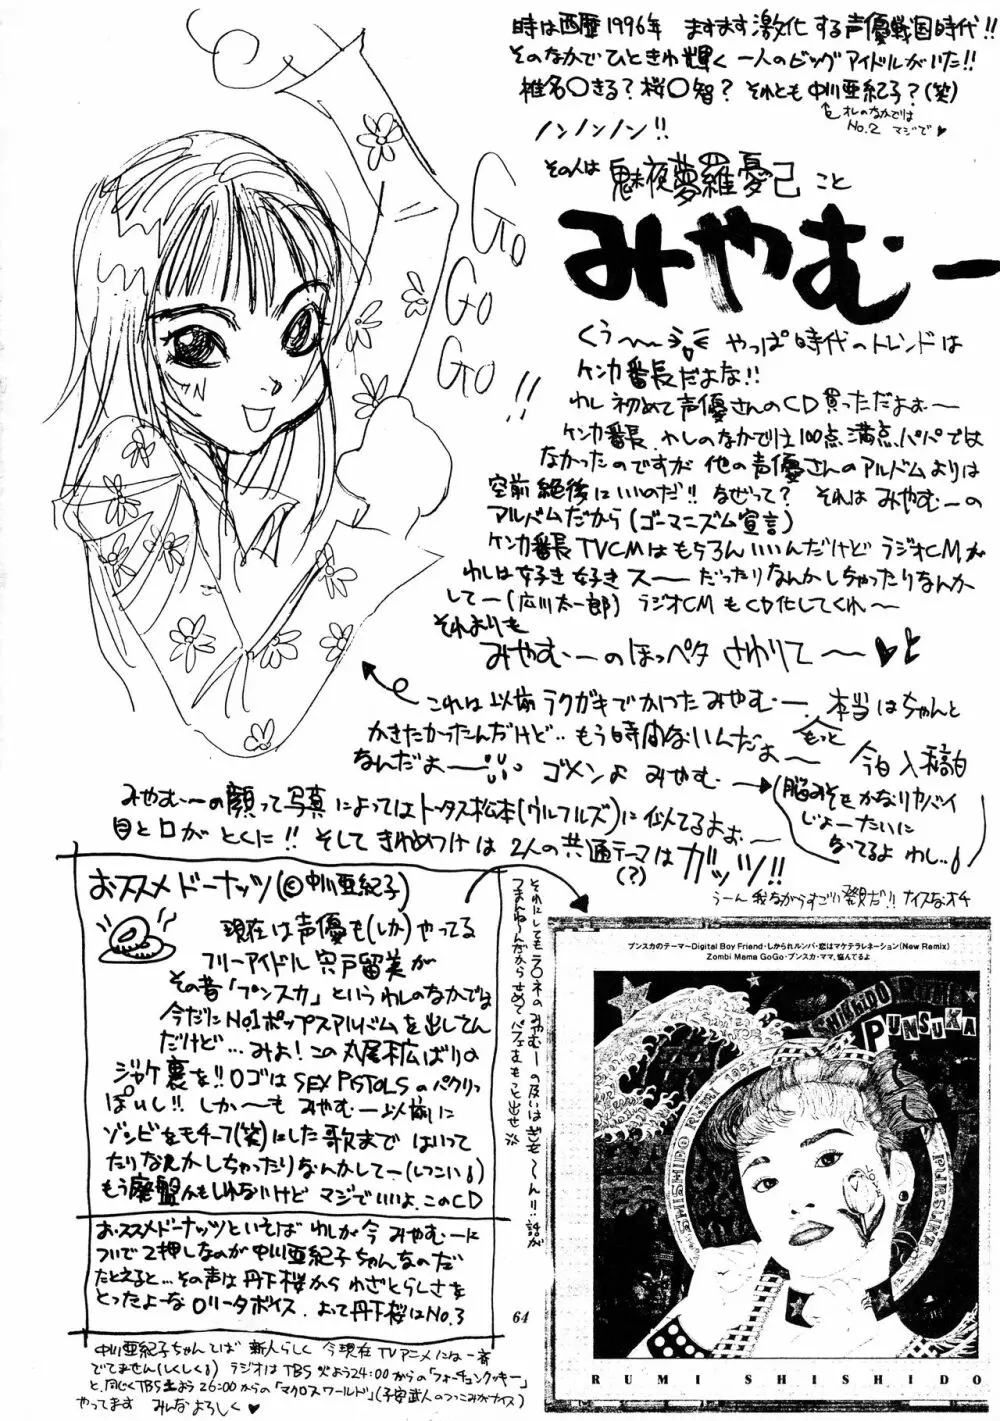 時は西歴1996年 ますます激化する声優戦国時代!!
そのなかでひときわ輝く一人のビッグアイドルがいた!!
椎名〇きる?桜〇智? それとも中川亜紀子?(笑)
オレのなかでは
No.2 マジで♥
ノンノンノン!!
その人は 魅夜夢羅優己 こと
みやむー
Go
Go
Go!!
くぅ〜〜 やっぱ時代のトレンドは
ケンカ番長だよな!!
わし初めて声優さんのCD買っただよぉ〜
ケンカ番長、わしのなかでは100点満点パパでは
なかったのですが他の声優さんのアルバムよりは
空前絶後にいいのだ!! なぜって? それはみやむーの
アルバムだから(ゴーマニズム宣言)
ケンカ番長TVCMはもちろんいいんだけどラジオCMが
わしは好き好きスー だったりなんかしちゃったりなんか
してー(広川太一郎) ラジオCMもCD化してくれ〜
それよりも
みやむーのほっペタさわりてー〜♥
これは以前ラクガキでかいたみやむー。本当はちゃんと
かきたかったんだけど‥もう時間ないんだよ〜 もっと
なんだよー ゴメンよ みやむー
今日入稿日
(脳みそもかなりヤバイ
じょーたいに
なってるよ わし‥)
みやむーの顔って写真によってはトータス松本(ウルフルズ)に似てるよぉ〜
目と口がとくに!! そしてきわめつけは2人の共通テーマはガッツ!!
(?)
うーん我ながらすごい発見だ!! ナイスなオチ
おススメドーナッツ(©中川亜紀子)
現在は声優も(しか)やってる
フリーアイドル宍戸留美が
その昔「プンスカ」というわしのなかでは
今だにNo.1ポップスアルバムを出してん
だけど…みよ!この丸尾末広ばりの
ジャケ裏を!!ロゴはSEX PISTOLSのパクリっ
ぽいし!! しか〜もみやむー以前に
ゾンビをモチーフ(笑)にした歌まではいって
たりなんかしちゃったりなんかしてー(しつこい)
もう廃盤かもしれないけどマジでいいよ、このCD
おススメドーナッツといえばわしが今みやむーに
ついで2押しなのが中川亜紀子ちゃんなのだ
たとえると…その声は丹下桜からわざとらしさを
とったよーなロリータボイス。よって丹下桜はNo.3
中川亜紀子ちゃん
新人らしく 今現在TVアニメには一斉
でてません(しくしく) ラジオはTBS火よう24:00からの「フォーチュンクッキー」
と、同じくTBS土よう26:00からの「マクロスワールド」(子安武人のつっこみがナイス)
やってます みんなよろしく♥
それにしてもラ〇ネのみやむーの及いはぎも〜ん!!話が
つまんねーんだからせめてパフェもっと出せ
64
プンスカのテーマ〜Digital Boy Friend・しかられルンバ・恋はマケテラレネーション(New Remix)
Zombi Mama GoGo・プンスカ・ママ、悩んでるよ
SHISHIDO RUMI
PUNSUKA
SHISHIDO RUMI 1994
RUMI SHISHIDO